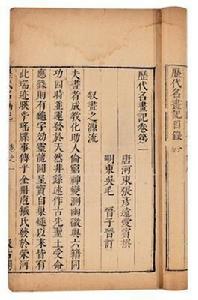 歷代名畫記卷第一
唐河東張彥遠愛賓撰
明東吳毛晉子晉訂
敘畫之源流
夫畫者成教化助人倫窮神變測幽微與六籍同
功四時並運發於天然非繇述作古先聖王受命
應籙則有龜字效靈龍圖呈寶自巢燧以來皆有
此瑞迹映乎瑤牒事傳乎金冊庖犧氏發於滎河